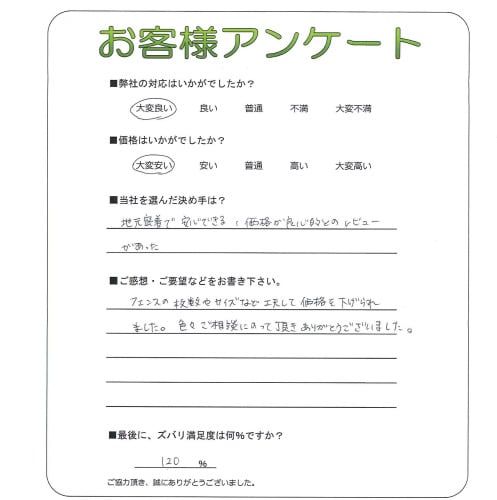 お客様アンケート
■弊社の対応はいかがでしたか？
大変良い 良い 普通 不満 大変不満
■価格はいかがでしたか？
大変安い 安い 普通 高い 大変高い
■当社を選んだ決め手は？
地元密着で安心できる、価格が良心的とのレビュー
があった
■ご感想・ご要望などをお書き下さい。
フェンスの枚数やサイズなど工夫して価格を下げられ
ました。色々ご相談にのって頂きありがとうございました。
■最後に、ズバリ満足度は何%ですか？
120 %
ご協力頂き、誠にありがとうございました。